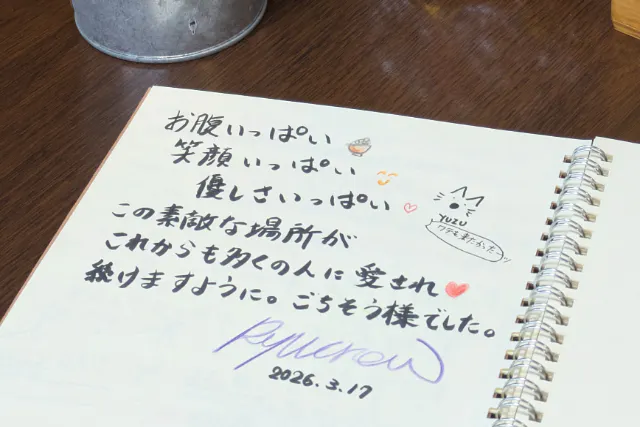 お腹いっぱい
笑顔いっぱい
優しさいっぱい
YUZU
ワテも来たかったーッ
この素敵な場所が
これからも多くの人に愛され
続けますように。ごちそう様でした。
Ryucrew
2026.3.17